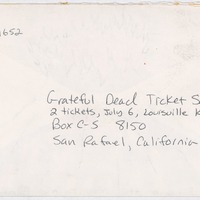 1652
Grateful Dead Ticket S
2 tickets, July 6, Louisville K
Box C-S 8150
San Rafael, California